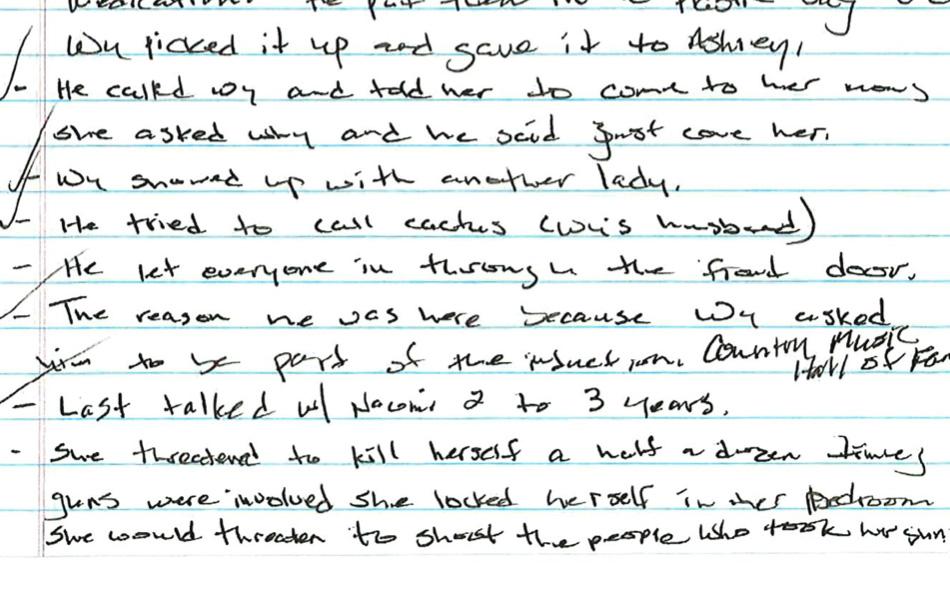 Wy picked it up and gave it to Ashley,
- He called wy and told her to come to her moms
she asked why and he said just come her.
- Wy showed up with another lady.
- He tried to call cactus (Wy's husband)
- He let everyone in through the front door.
- The reason he was here because Wy asked
him to be part of the induction. Country Music
Hall of Fam
- Last talked w/ Naomi 2 to 3 years.
- She threatened to kill herself a half a dozen times
guns were involved she locked herself in her bedroom
She would threaten to shoot the people who took her gun